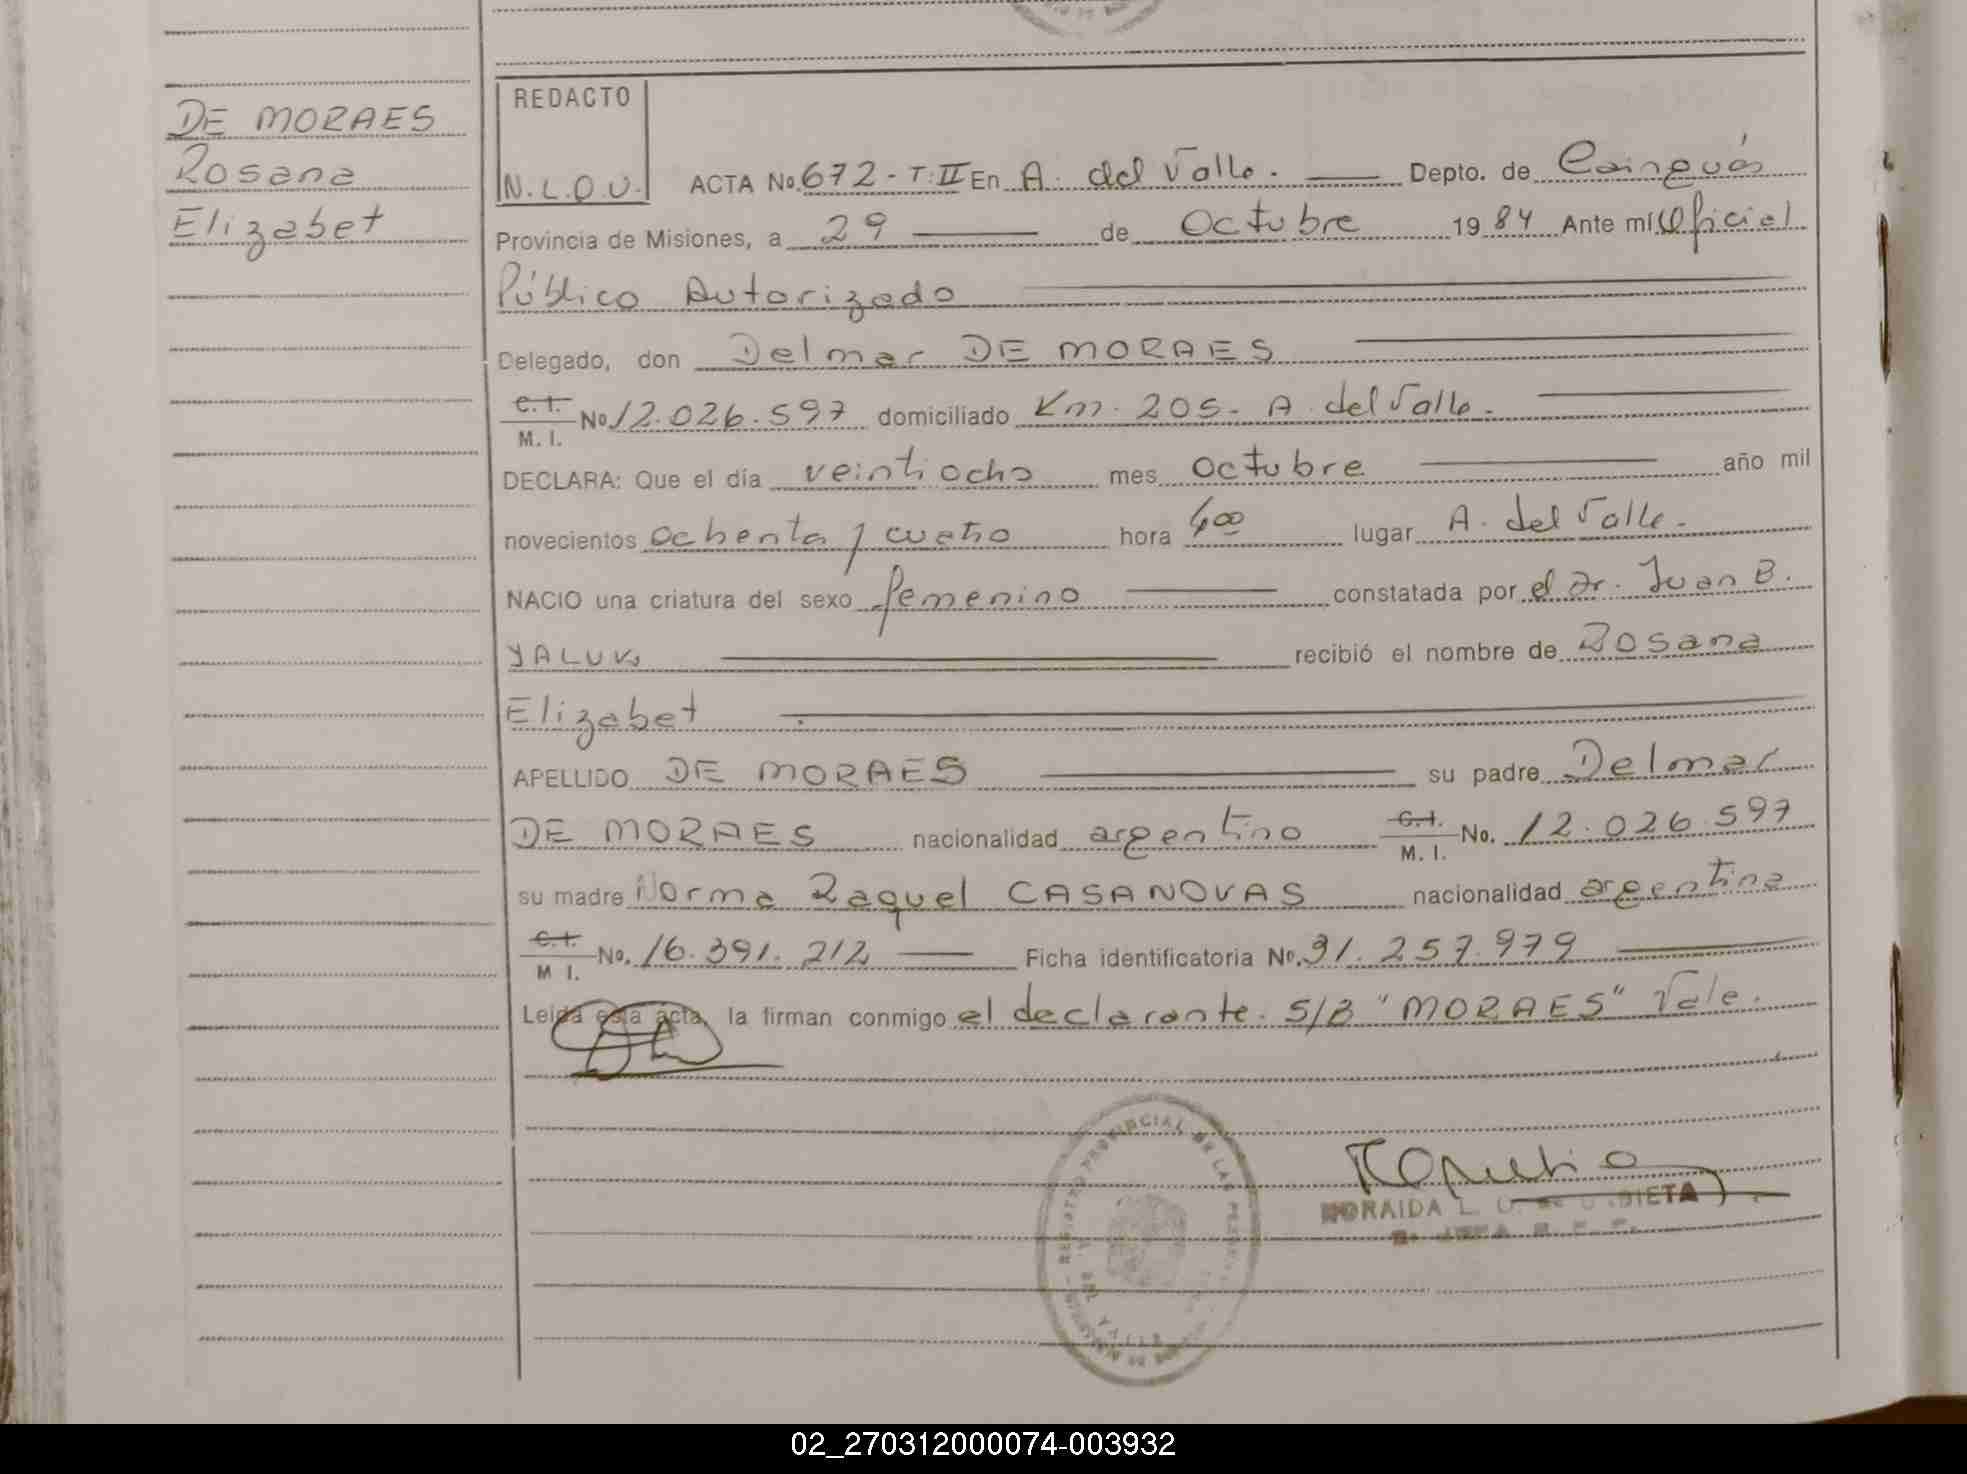 DE MORAES
Rosana
Elizabet
REDACTO
N.L.O.U.
ACTA No. 672 - T: II En A. del Valle. Depto. de Cainguás
Provincia de Misiones, a 29 de Octubre 1984 Ante mí Oficial
Público Autorizado
Delegado, don Delmar DE MORAES
C.I. M.I. No 12.026.597 domiciliado Km. 205 - A. del Valle.
DECLARA: Que el día veintiocho mes octubre año mil
novecientos ochenta y cuatro hora 4⁰⁰ lugar A. del Valle.
NACIO una criatura del sexo femenino constatada por el Dr. Juan B.
YALUK recibió el nombre de Rosana
Elizabet
APELLIDO DE MORAES su padre Delmar
DE MORAES nacionalidad argentino C.I. M.I. No. 12.026.597
su madre Norma Raquel CASANOVAS nacionalidad argentina
C.I. M I. No. 16.391.212 Ficha identificatoria No. 31.257.979
Leída esta acta, la firman conmigo el declarante. S/B "MORAES" Vale.
REGISTRO PROVINCIAL DE LAS
NORAIDA L.
02_270312000074-003932